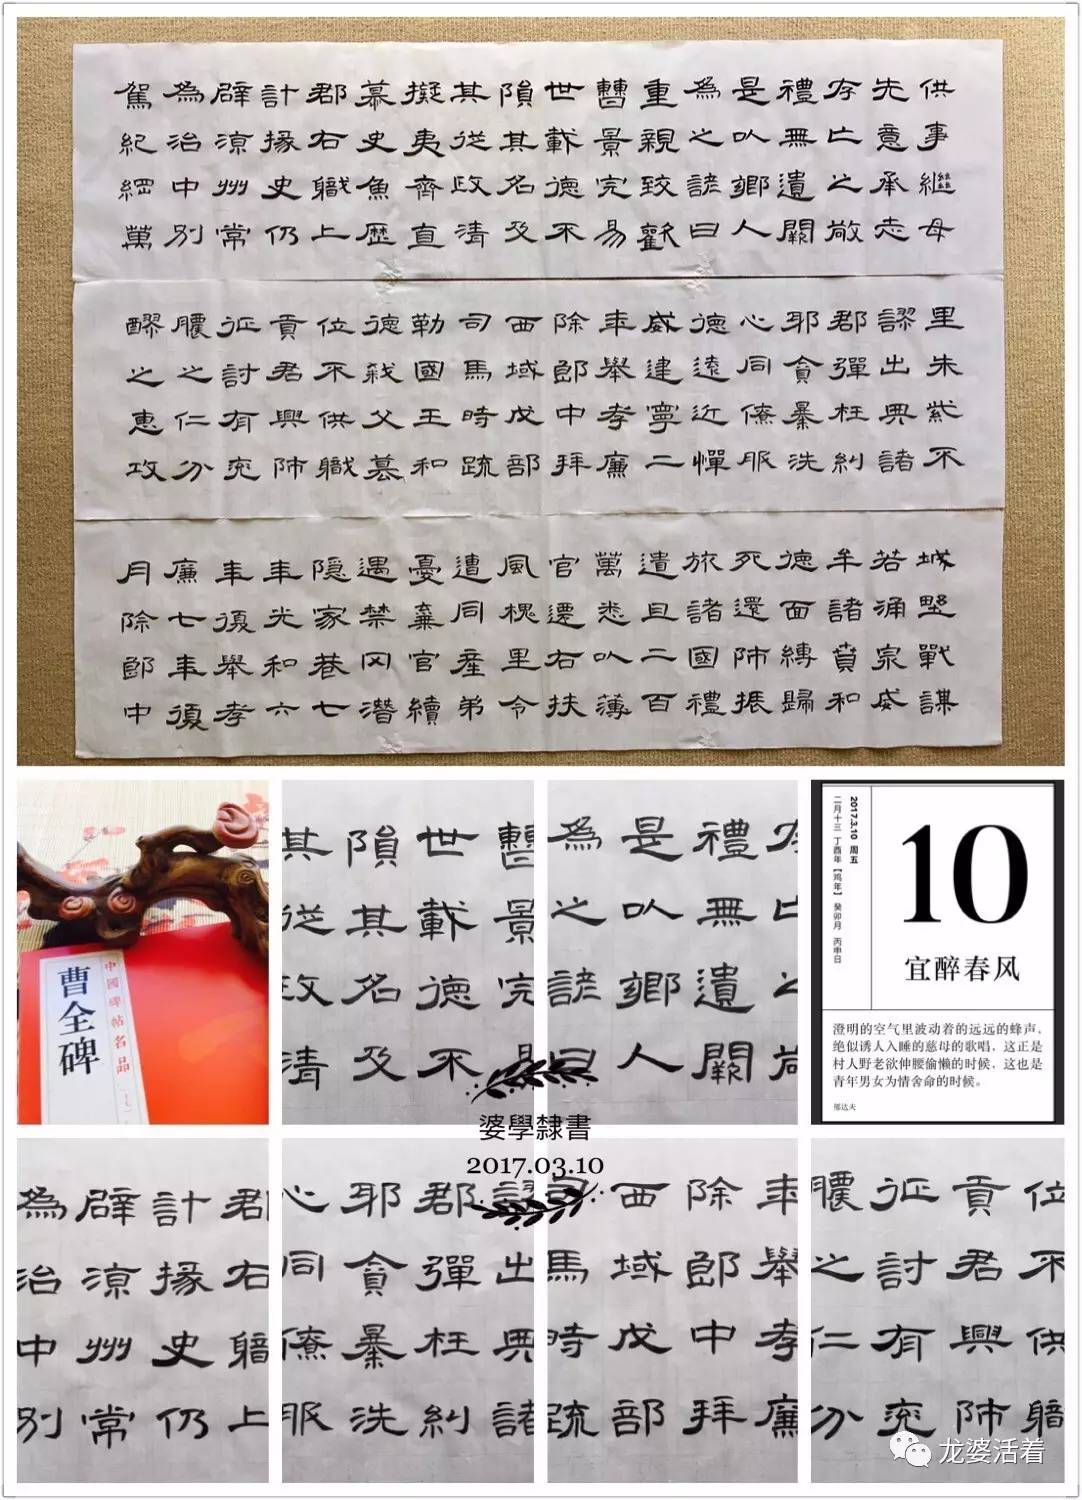 供事繼母
先意承志
存亡之敬
禮無遺闕
是以鄉人
為之諺曰
重親致歡
曹景完易
世載德不
隕其名及
其從政清
擬夷齊直
慕史魚歷
郡右職上
計掾史仍
辟涼州常
為治中別
駕紀綱萬
里朱紫不
謬出典諸
郡彈枉糾
耶貪暴洗
心同僚服
德遠近憚
威建寧二
年舉孝廉
除郎中拜
西域戊部
司馬時疏
勒國王和
德弒父篡
位不供職
貢君興師
征討有兖
膿之仁分
醪之惠攻
城野戰謀
若涌泉威
牟諸賁和
德面縛歸
死還師振
旅諸國禮
遺且二百
萬悉以薄
官遷右扶
風槐里令
遭同產弟
憂棄官續
遇禁冈潛
隱家巷七
年光和六
年復舉孝
廉七年復
月除郎中
中國碑帖名品
曹全碑
曹景完易
世載德不
隕其名及
其從政清
存亡之敬
禮無遺闕
是以鄉人
為之諺曰
2017.3.10 周五
二月十三 丁酉年【鸡年】癸卯月 丙申日
10
宜醉春风
澄明的空气里波动着的远远的蜂声，
绝似诱人入睡的慈母的歌唱，这正是
村人野老欲伸腰偷懒的时候，这也是
青年男女为情舍命的时候。
郁达夫
婆學隸書
2017.03.10
郡右職上
計掾史仍
辟涼州常
為治中別
謬出典諸
郡彈枉糾
耶貪暴洗
心同僚服
年舉孝廉
除郎中拜
西域戊部
司馬時疏
位不供職
貢君興師
征討有兖
膿之仁分
龙婆活着